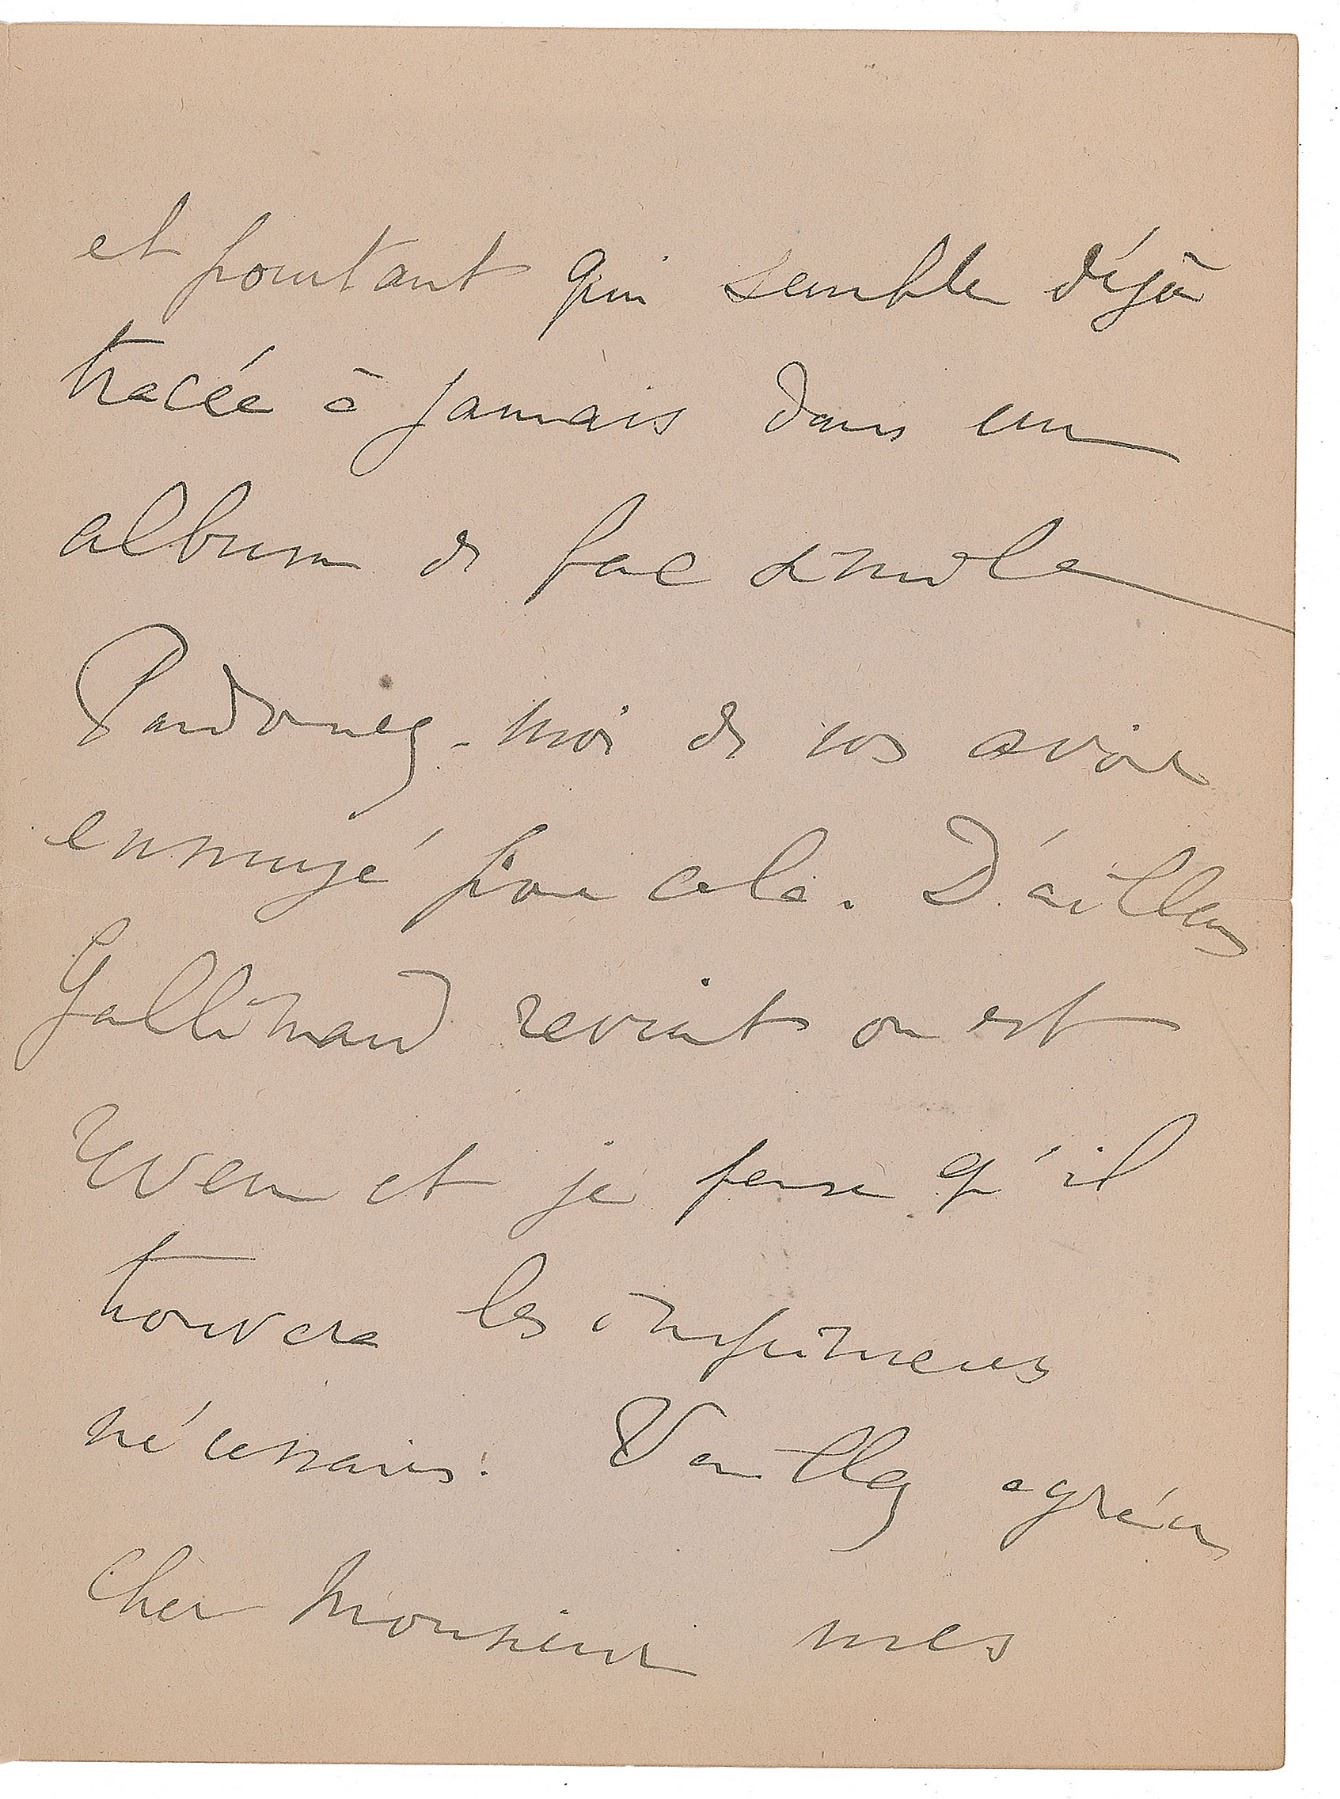 et pourtant qui semble déjà
tracée à jamais dans un
album de fac simile
Pardonnez-moi de vos avoir
ennuyé pour cela. D'ailleurs
Gallimard revient ou est
revenu et je pense qu'il
trouvera les imprimeurs
nécessaires. Veuillez agréer
cher Monsieur mes